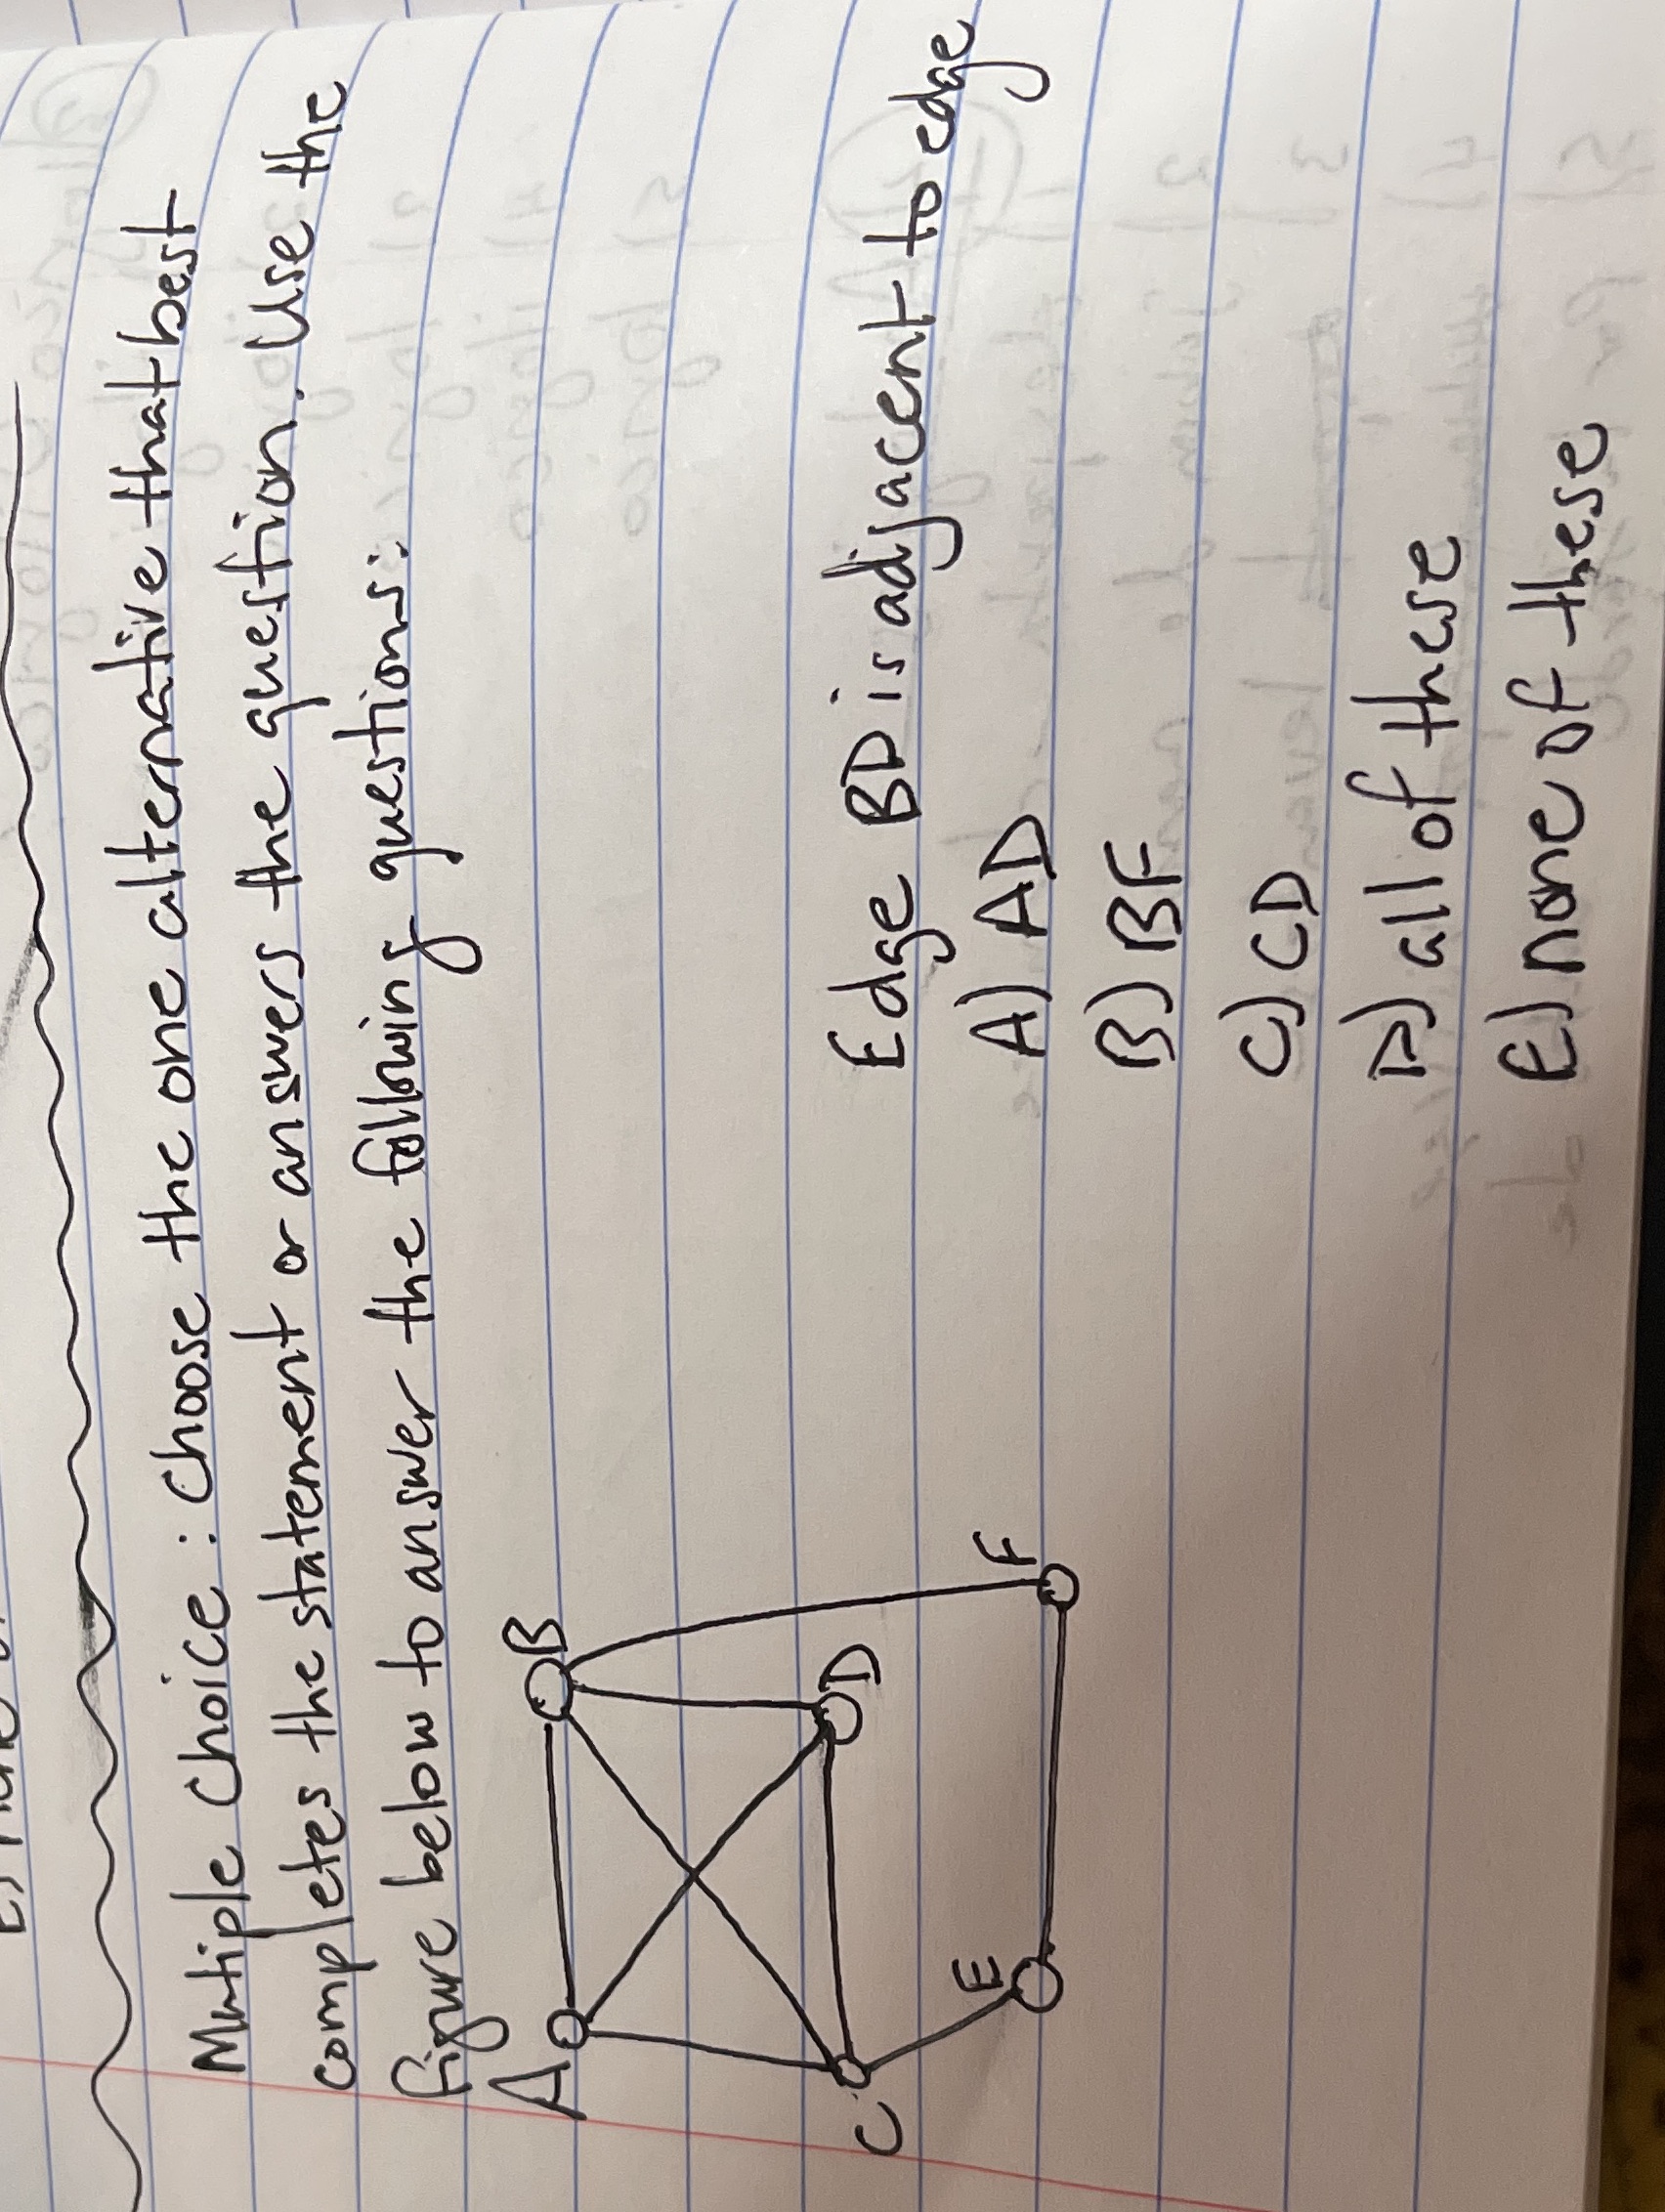 Multiple Choice : Choose the one alternative that best
completes the statement or answers the question. Use the
figure below to answer the following questions:
A
B
C
D
E
F
Edge BD is adjacent to edge
A) AD
B) BF
C) CD
D) all of these
E) none of these